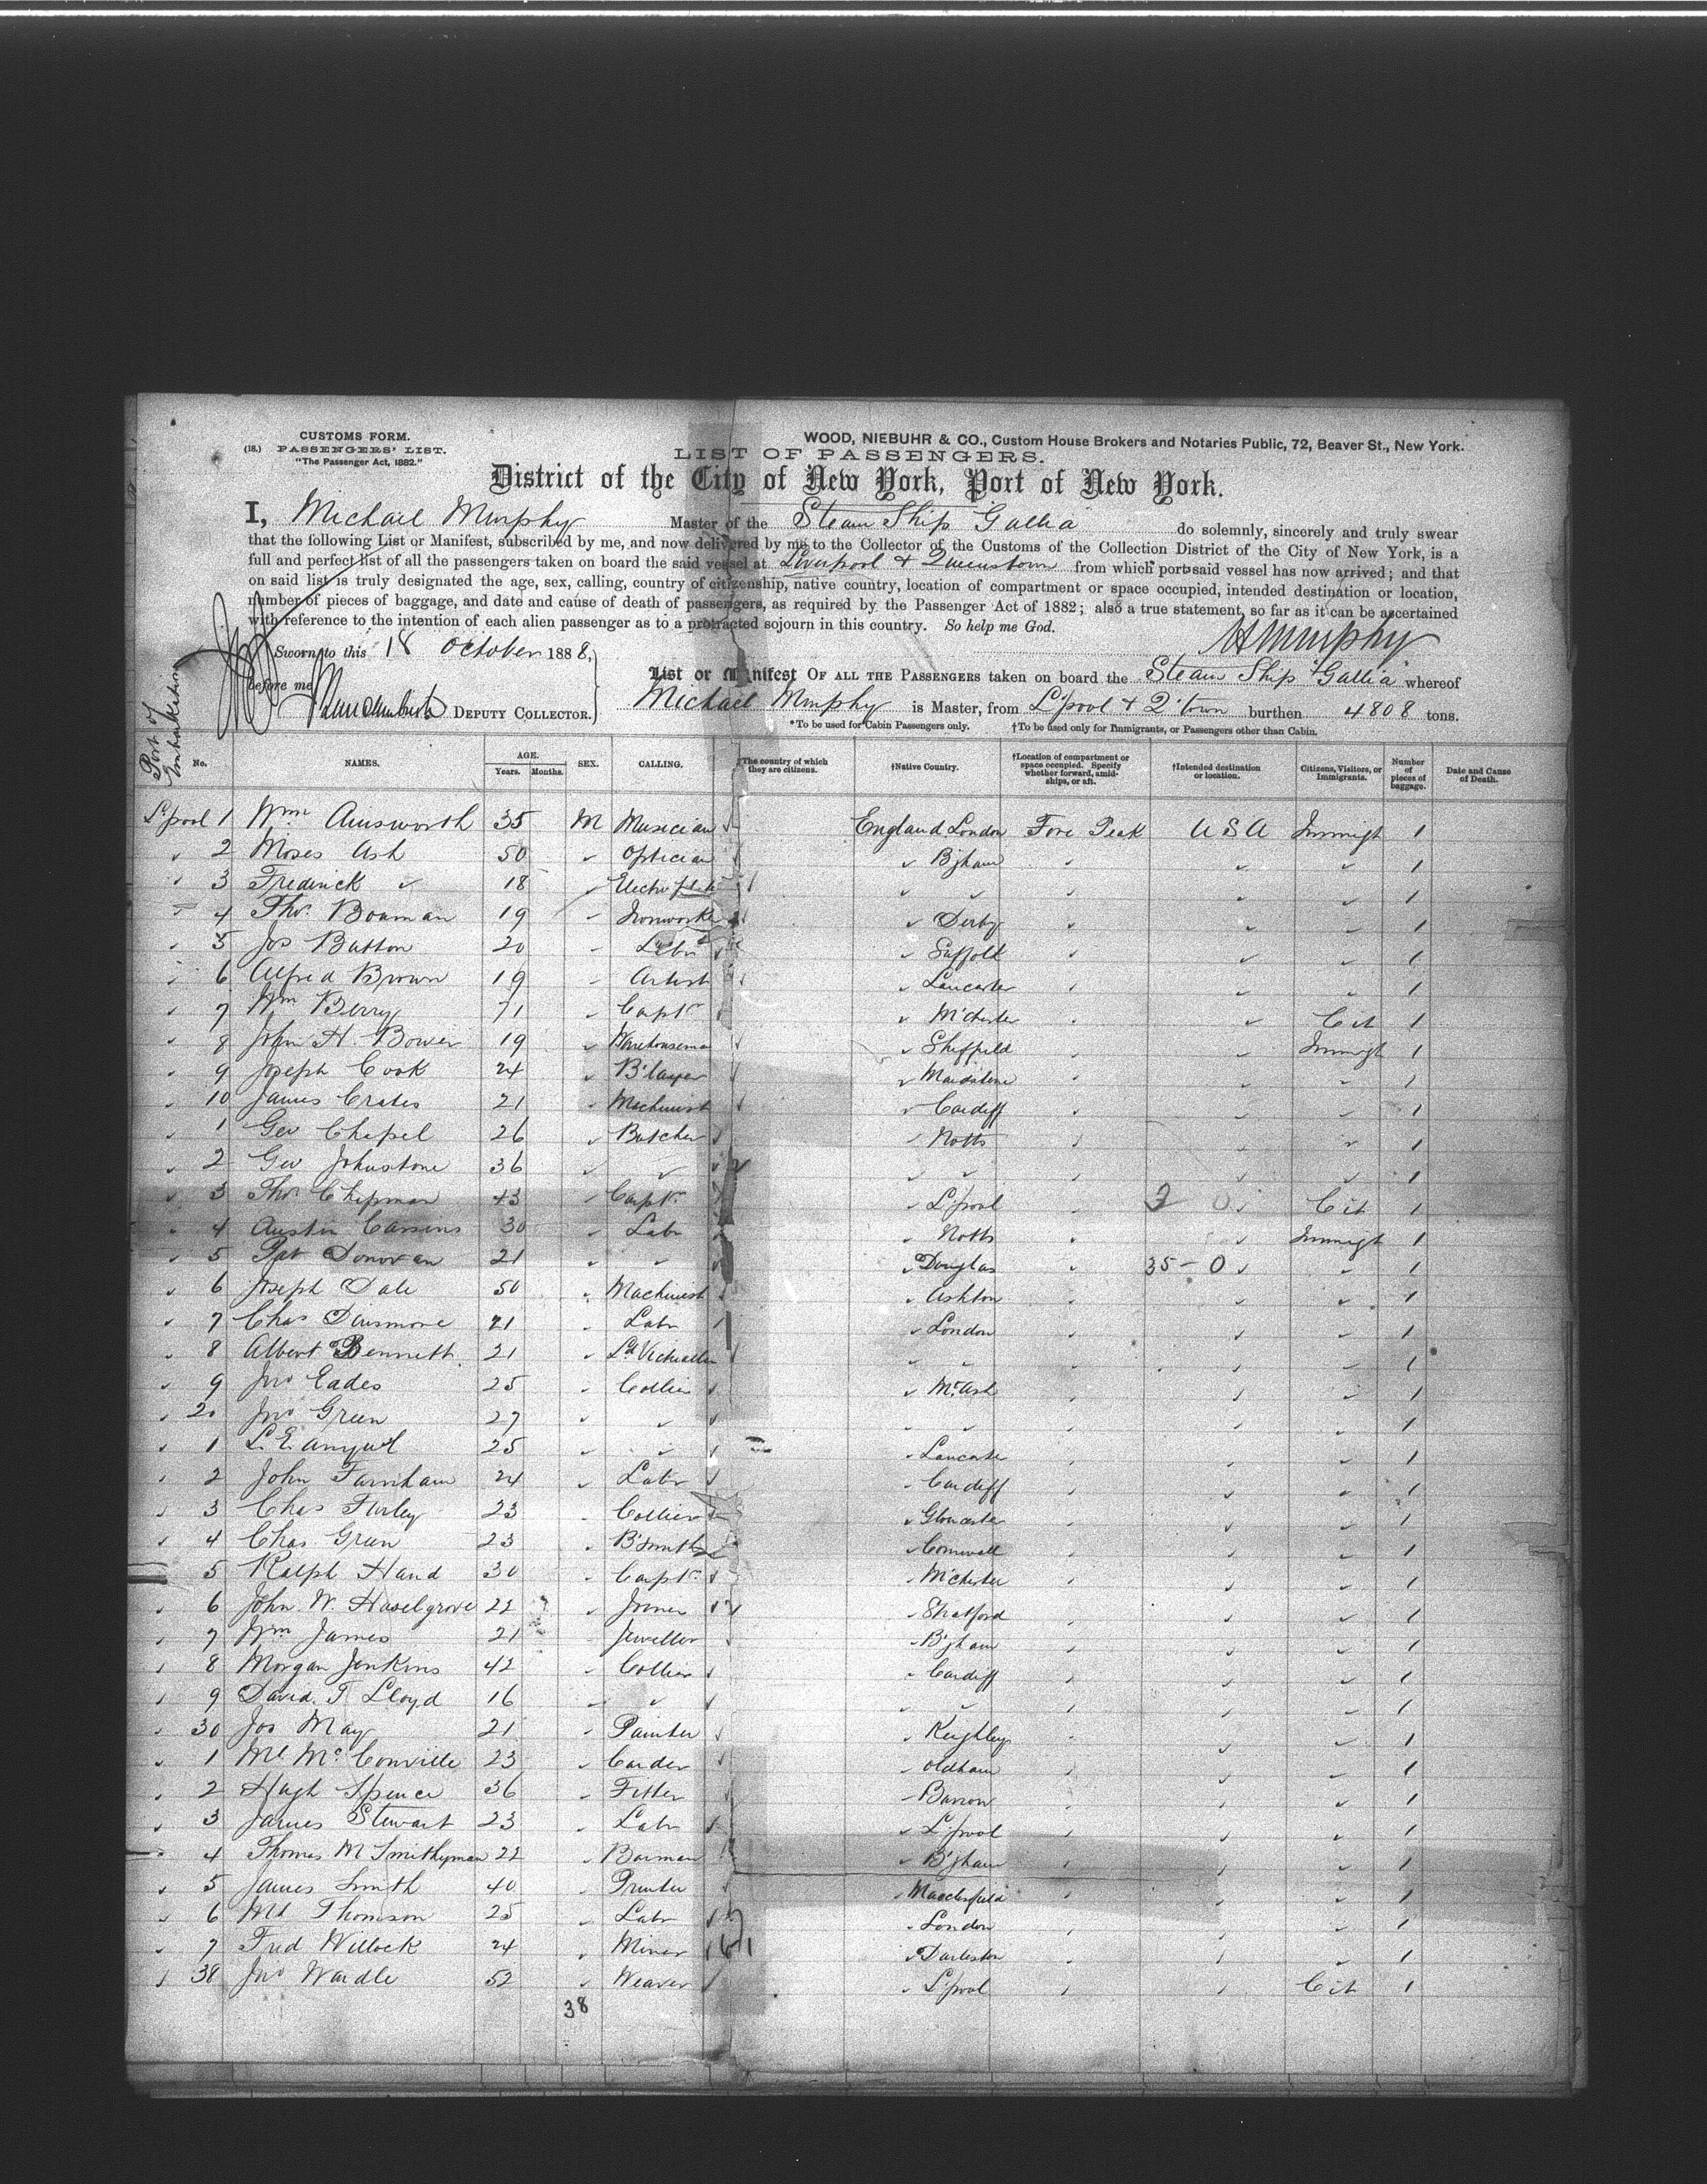 CUSTOMS FORM.
(18.) PASSENGERS' LIST.
"The Passenger Act, 1882."
WOOD, NIEBUHR & CO., Custom House Brokers and Notaries Public, 72, Beaver St., New York.
LIST OF PASSENGERS.
District of the City of New York, Port of New York.
I, Michael Murphy Master of the Steam Ship Gallia do solemnly, sincerely and truly swear
that the following List or Manifest, subscribed by me, and now delivered by me to the Collector of the Customs of the Collection District of the City of New York, is a
full and perfect list of all the passengers taken on board the said vessel at Liverpool & Queenstown from which port said vessel has now arrived; and that
on said list is truly designated the age, sex, calling, country of citizenship, native country, location of compartment or space occupied, intended destination or location,
number of pieces of baggage, and date and cause of death of passengers, as required by the Passenger Act of 1882; also a true statement, so far as it can be ascertained
with reference to the intention of each alien passenger as to a protracted sojourn in this country. So help me God.
MMurphy
Sworn to this 18 October 1888,
before me
DEPUTY COLLECTOR.
List or Manifest OF ALL THE PASSENGERS taken on board the Steam Ship Gallia whereof
Michael Murphy is Master, from L'pool & Q'town burthen 4808 tons.
*To be used for Cabin Passengers only. †To be used only for Immigrants, or Passengers other than Cabin.
Port of Embarkation No. NAMES. AGE. Years. Months. SEX. CALLING. *The country of which they are citizens. †Native Country. †Location of compartment or space occupied. Specify whether forward, amidships, or aft. †Intended destination or location. Citizens, Visitors, or Immigrants. Number of pieces of baggage. Date and Cause of Death.
L'pool 1 Wm Ainsworth 35 M Musician England London Fore Peak USA Immigt 1
2 Moses Ash 50 Optician B'gham 1
3 Frederick 18 1
4 Thos. Bowman 19 Ironworker Derby 1
5 Jos Button 20 Labr Suffolk 1
6 Alfred Brown 19 Artist Lancaster 1
7 Wm Berry 71 Capt M'chester Cit 1
8 John H. Bower 19 Warehouseman Sheffield Immigt 1
9 Joseph Cook 24 B'layer Maidstone 1
10 James Crates 21 Machinist Cardiff 1
1 Geo Chapel 26 Butcher Notts 1
2 Geo Johnstone 36 1
3 Thos Chapman 43 Capt L'pool Cit 1
4 Austin 30 Labr Notts Immigt 1
5 Pat Donovan 21 Douglas 35-0 1
6 Joseph Dale 50 Machinist Ashton 1
7 Chas Dinsmore 21 Labr London 1
8 Albert Bennett 21 Ld Victualler 1
9 Jno Eades 25 Collier 1
20 Jno Green 27 1
1 25 Lancaste 1
2 John Farnham 24 Labr Cardiff 1
3 Chas Furley 23 Collier Gloucester 1
4 Chas Green 23 B'smith Cornwall 1
5 Ralph Hand 30 Capt M'chester 1
6 John W. Haselgrove 22 Joiner Stratford 1
7 Wm James 21 Jeweller B'gham 1
8 Morgan Jenkins 42 Collier Cardiff 1
9 David T Lloyd 16 1
30 Jos May 21 Painter Keighley 1
1 Ml McConville 23 Carder Oldham 1
2 Hugh Spence 36 Fitter Barrow 1
3 James Stewart 23 Labr L'pool 1
4 Thomas M Smithyman 22 Barman B'gham 1
5 James Smith 40 Printer Macclesfield 1
6 Thomson 25 Labr London 1
7 Fred Willock 24 Miner Darlaston 1
38 Jno Wardle 52 Weaver L'pool Cit 1
38